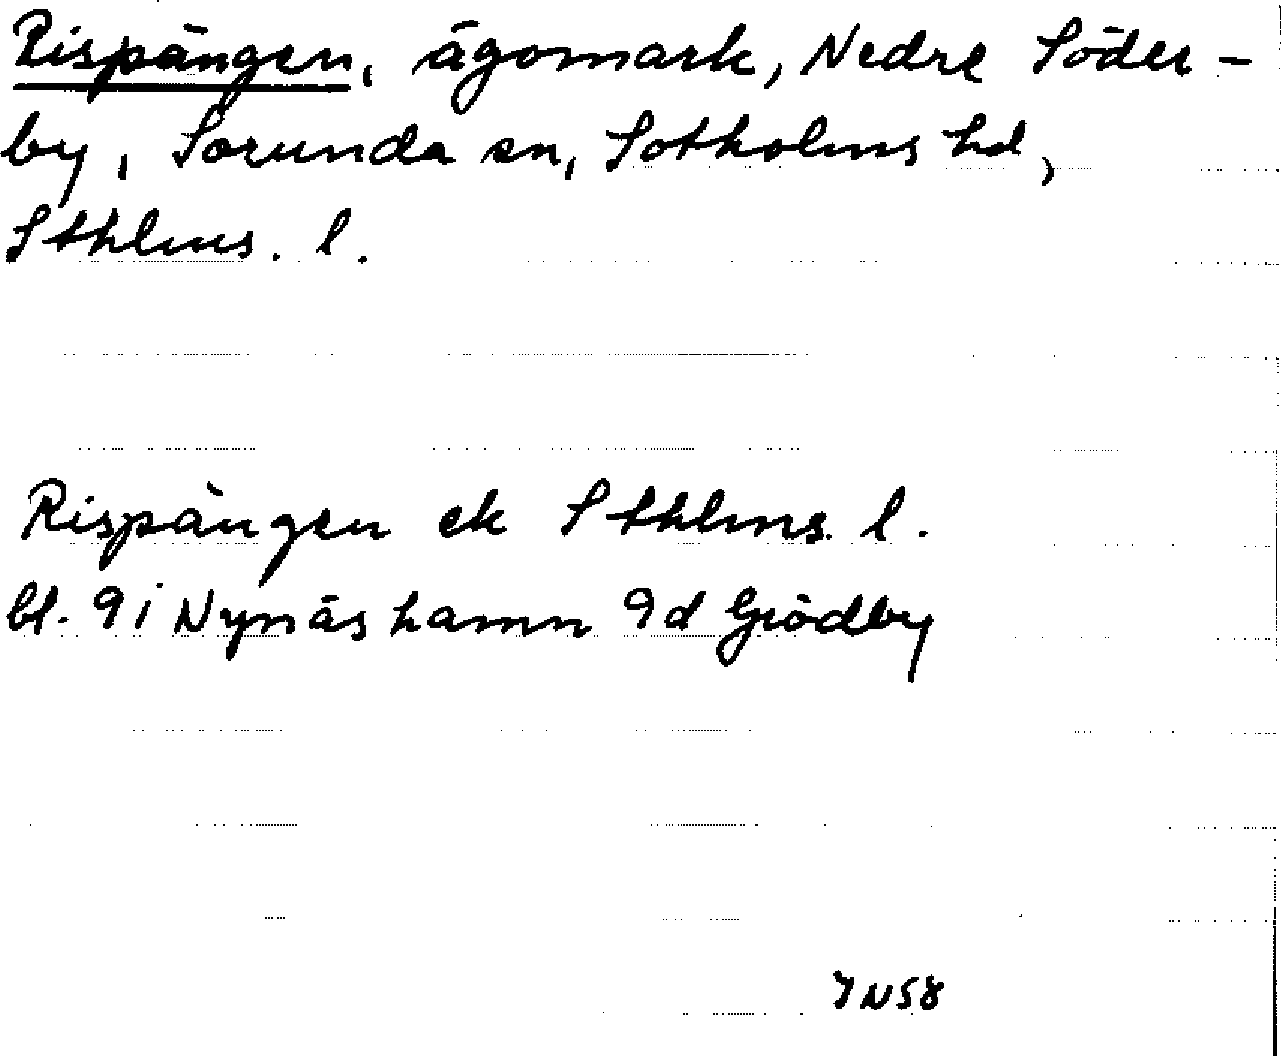 Rispängen, ägomark, Nedre Söder-
by, Sorunda sn, Sotholms hd,
Sthlms. l.
Rispängen ek Sthlms. l.
bl. 9i Nynäshamn 9d Grödby
IN58